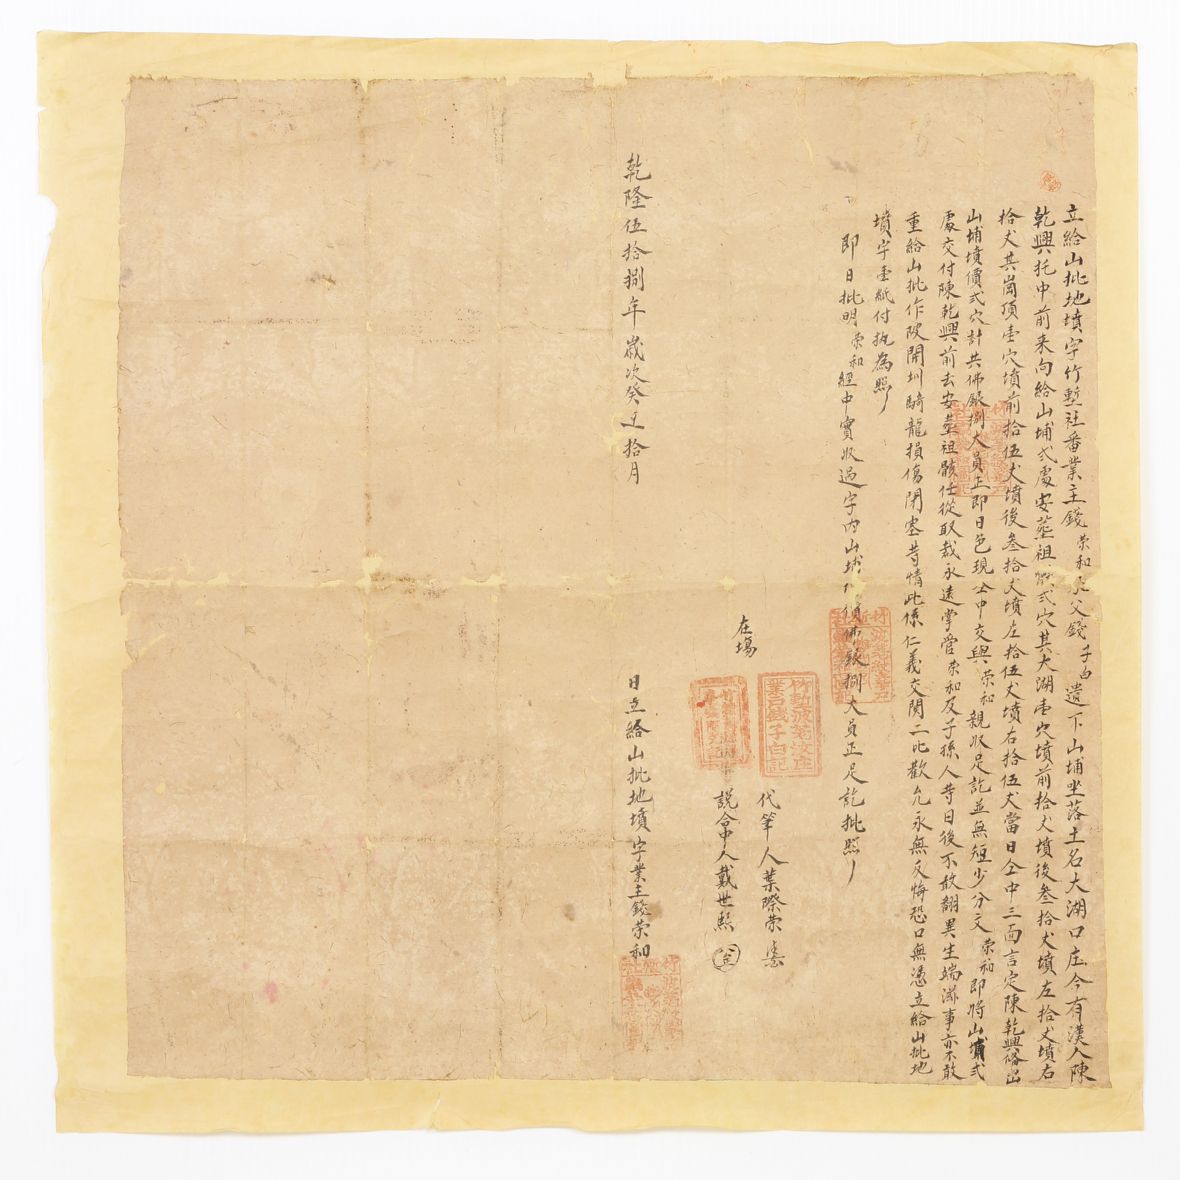 立給山批地墳字竹塹社番業主錢荣和承父錢子白遺下山埔坐落土名大湖口庄今有漢人陳
乾興托中前来向給山埔弍處安塟祖 弍穴其大湖壹穴墳前拾丈墳後叁拾丈墳左拾丈墳右
拾丈其崗頂壹穴墳前拾伍丈墳後叁拾丈墳左拾伍丈墳右拾伍丈當日仝中三面言定陳乾興備出
山埔墳價弍穴計共佛銀捌大員正即日色現仝中交與荣和親收足訖並無短少分文荣和即将山埔弍
處交付陳乾興前去安塟祖骸任從取裁永遠掌管荣和及子孫人等日後不敢翻異生端滋事亦不敢
重給山批作陂開圳騎龍損傷閉塞等情此係仁義交関二比歡允永無反悔恐口無憑立給山批地
墳字壹紙付执為照
即日批明荣和經中實收過字内山埔 價佛銀捌大員正足訖批照
代筆人葉際荣
竹塹波羅汶庄業户錢子白記
在塲
説合中人戴世熙
乾隆伍拾捌年歲次癸丑拾月
日立給山批地墳字業主錢荣和